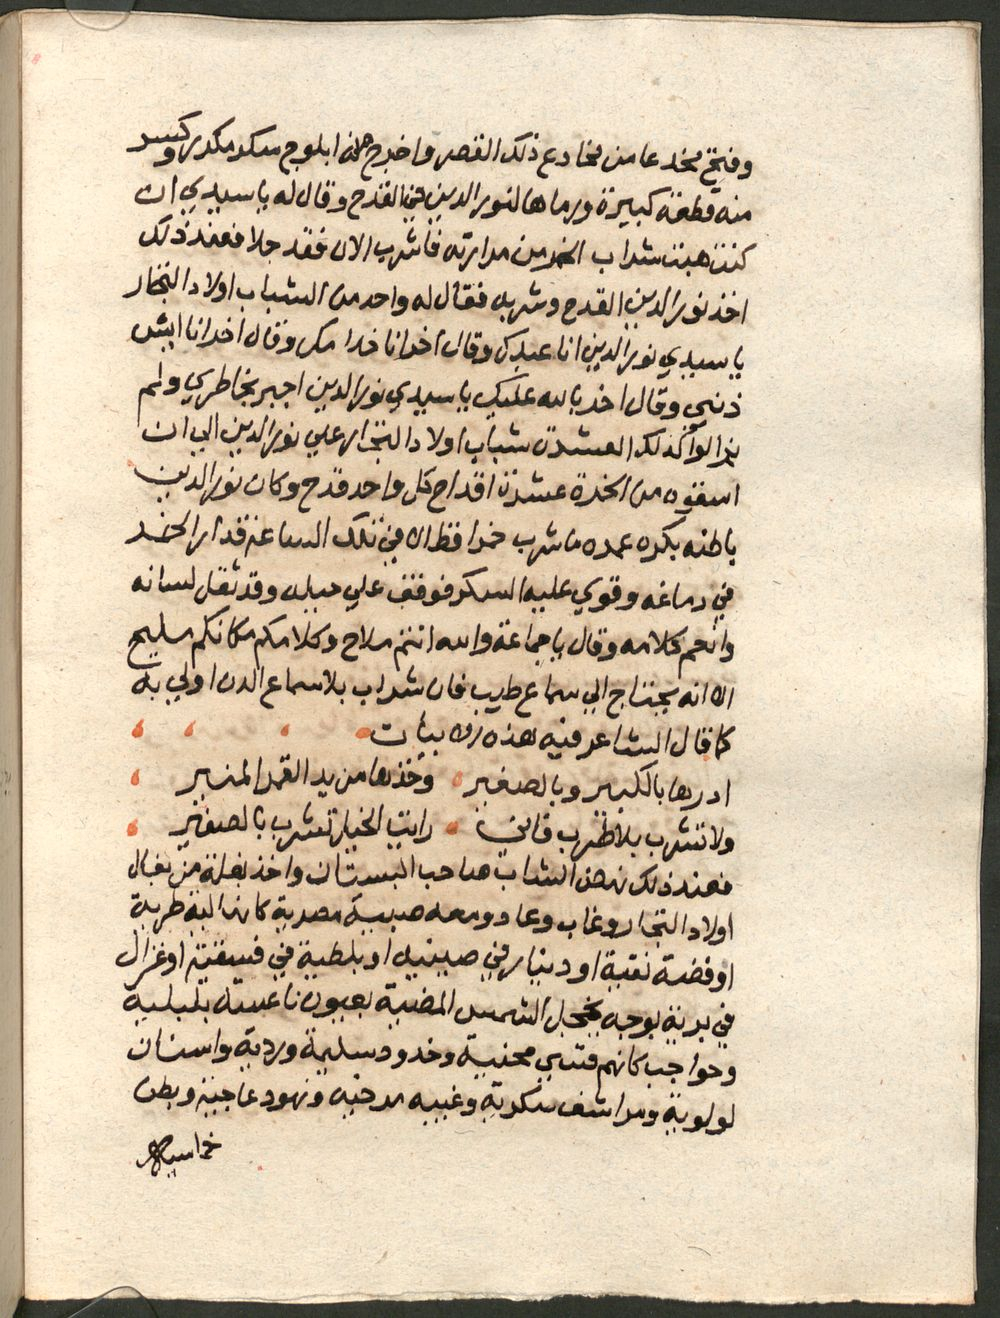 وفتح مخدعا من مخادع ذلك القصر واخرج منه ابلوج سكر مكرر وكسر
منه قطعة كبيرة ورماها لنور الدين في القدح وقال له يا سيدي ان
كنت هبت شراب الخمر من مرارته فاشرب الان فقد حلا فعند ذلك
اخذ نور الدين القدح وشربه فقال له واحد من الشباب اولاد التجار
يا سيدي نور الدين انا عبدك وقال اخر انا خدامك وقال اخر انا ايش
ذنبي وقال اخر بالله عليك يا سيدي نور الدين اجبر بخاطري ولم
يزالوا كذلك العشرة شباب اولاد التجار علي نور الدين الي ان
اسقوه من الخمرة عشرة اقداح كل واحد قدح وكان نور الدين
باطنه بكره عمره ما شرب خمرا قط الا في تلك الساعة فدار الخمر
في دماغه وقوي عليه السكر فوقف علي حيله وقد ثقل لسانه
وانعجم كلامه وقال يا جماعة والله انتم ملاح وكلامكم مكانكم مليح
الا انه يحتاج الي سماع طيب فان شراب بلا سماع الدن اولي به
كما قال الشاعر فيه هذه الابيات
ادرها بالكبير وبالصغير وخذها من يد القمر المنير
ولا تشرب بلا طرب فاني رايت الخيل تشرب بالصفير
فعند ذلك نهض الشاب صاحب البستان واخذ بغلة من بغال
اولاد التجار وغاب وعاد ومعه صبية مصرية كانها الية طرية
او فضة نقية او دينار في صينيه او بلطية في فسقية او غزال
في برية بوجه يخجل الشمس المضية بعيون ناعسة بابلية
وحواجب كانهم قسي محنية وخدود سليمة وردية واسنان
لولوية ومراشف سكرية وغببه مرخيه ونهود عاجية وبطن
خماسيه